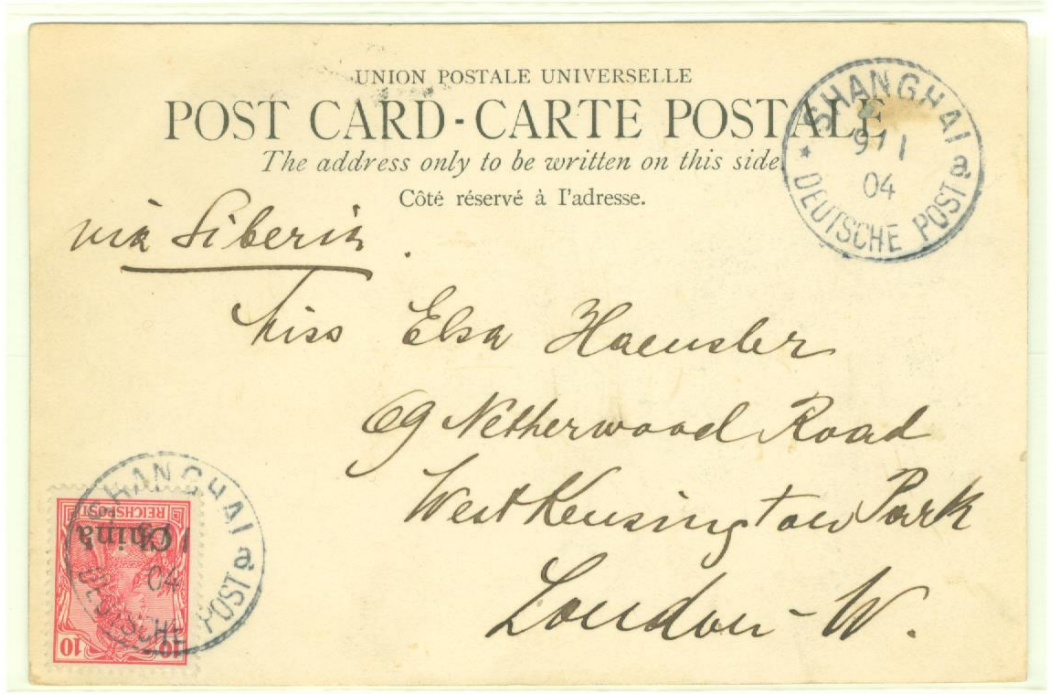 UNION POSTALE UNIVERSELLE
POST CARD - CARTE POSTALE
The address only to be written on this side
Côté réservé à l'adresse.
SHANGHAI
9/1
04
a
* DEUTSCHE POST
via Siberia.
Miss Elsa Haeusler
69 Netherwood Road
West Kensington Park
London - W.
SHANGHAI
04
a
DEUTSCHE POST
REICHSPOST
China
10
10